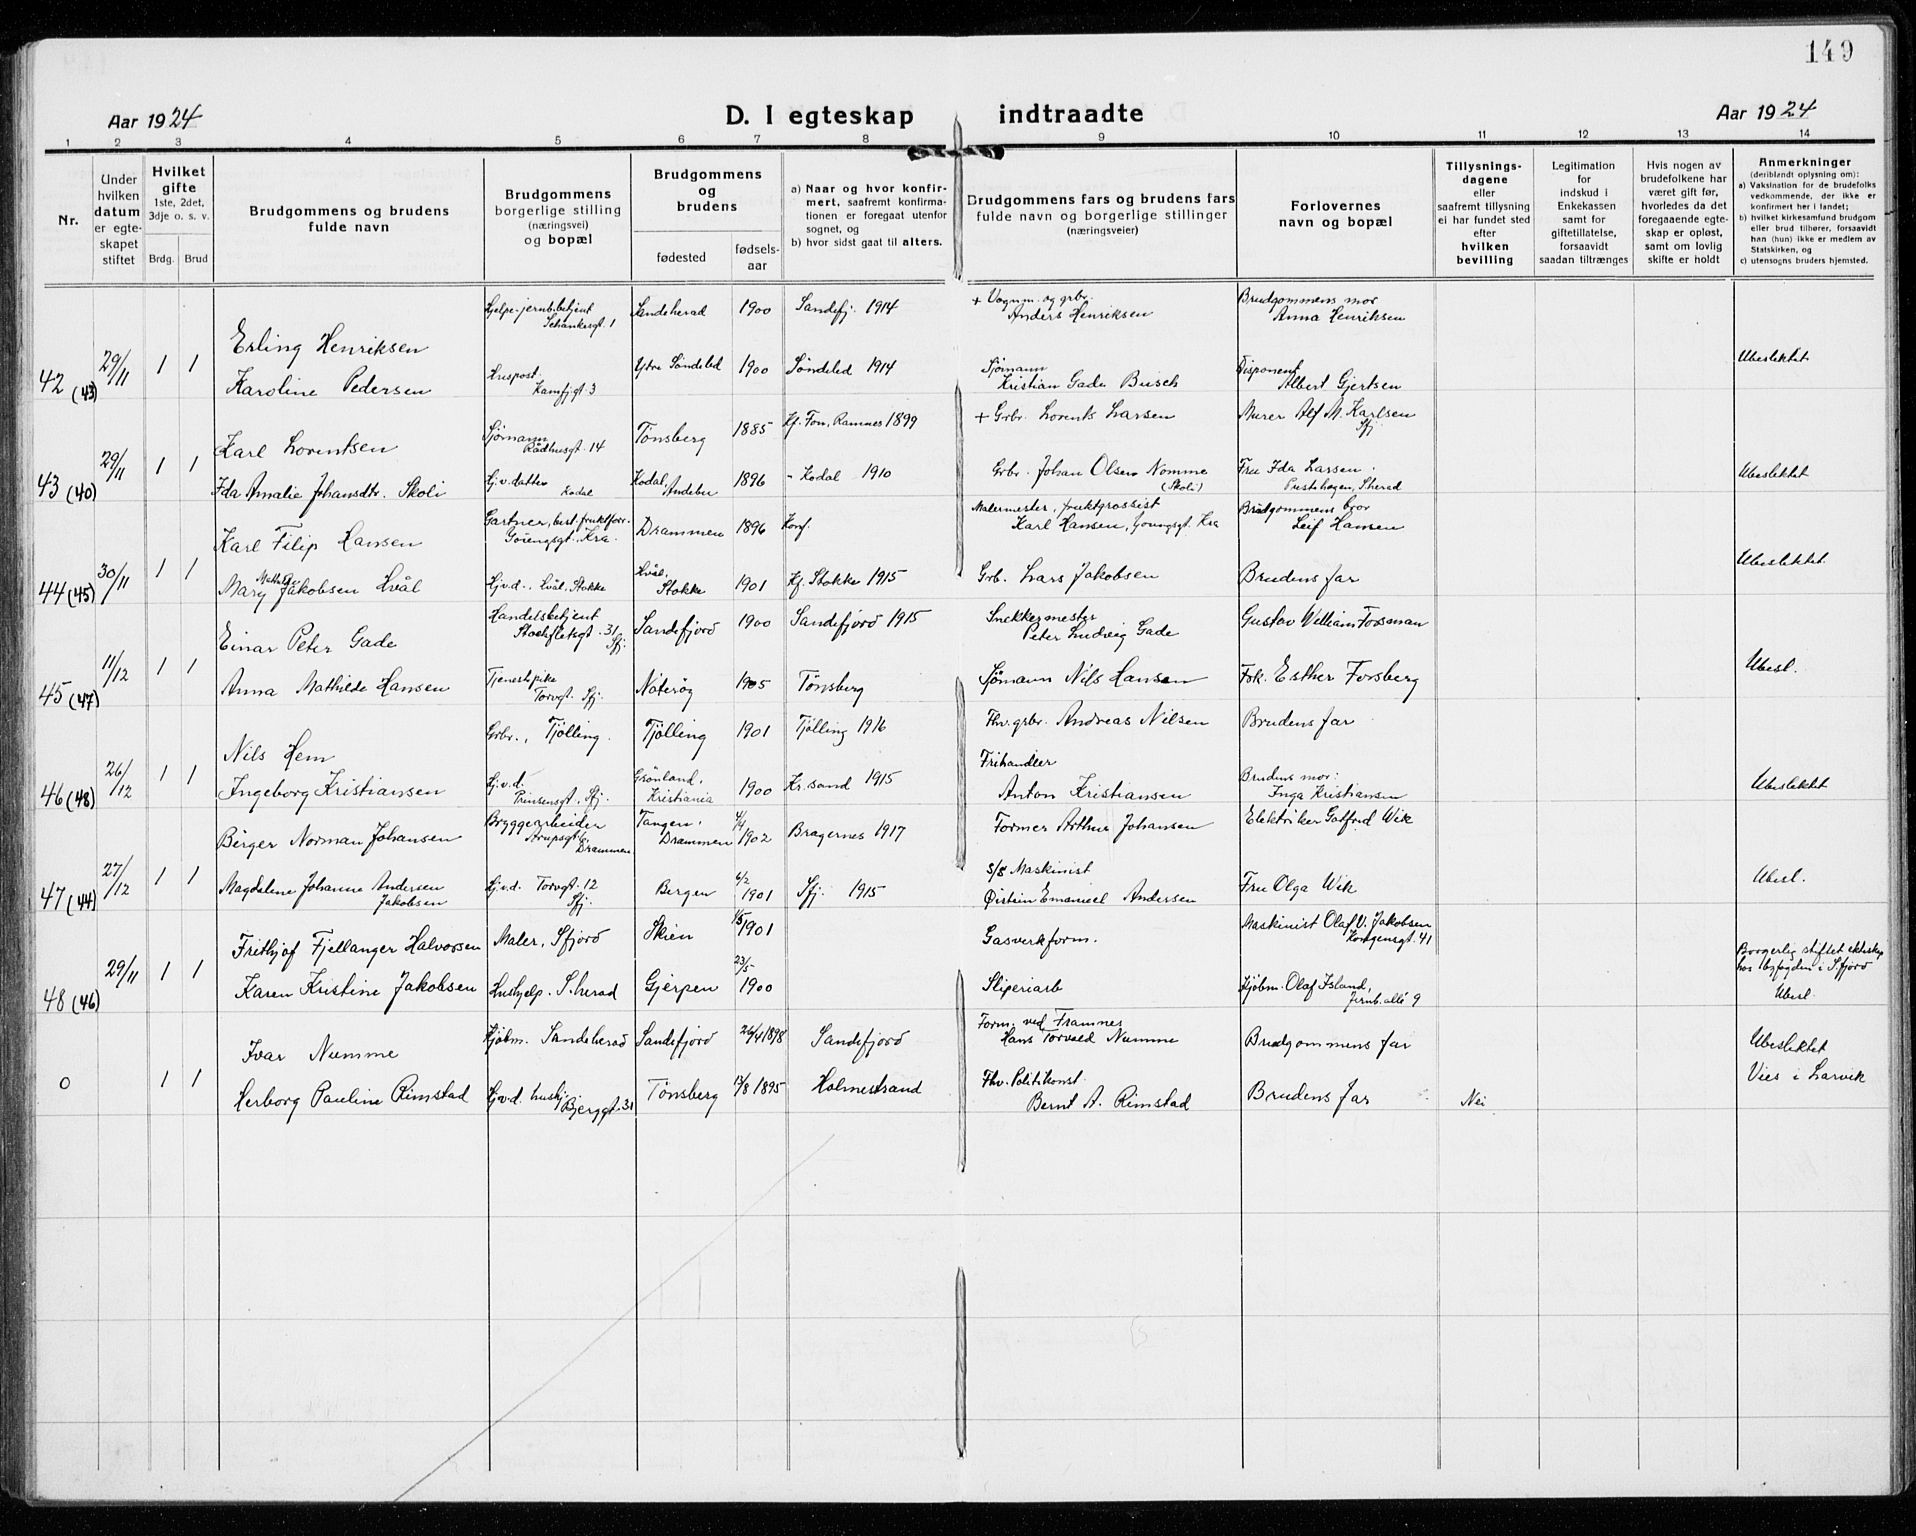 149
Aar 1924 D. I egteskap indtraadte Aar 1924
1 2 3 4 5 6 7 8 9 10 11 12 13 14
Nr.
Under
hvilken
datum
er egte-
skapet
stiftet
Hvilket
gifte
1ste, 2det,
3dje o. s. v.
Brdg. Brud
Brudgommens og brudens
fulde navn
Brudgommens
borgerlige stilling
(næringsvei)
og bopæl
Brudgommens
og
brudens
fødested
fødsels-
aar
a) Naar og hvor konfir-
mert, saafremt konfirma-
tionen er foregaat utenfor
sognet, og
b) hvor sidst gaat til alters.
Brudgommens fars og brudens fars
fulde navn og borgerlige stillinger
(næringsveier)
Forlovernes
navn og bopæl
Tillysnings-
dagene
eller
saafremt tillysning
ei har fundet sted
efter
hvilken
bevilling
Legitimation
for
indskud i
Enkekassen
samt for
giftetillatelse,
forsaavidt
saadan tiltrænges
Hvis nogen av
brudefolkene har
været gift før,
hvorledes da det
foregaaende egte-
skap er opløst,
samt om lovlig
skifte er holdt
Anmerkninger
(deriblandt oplysning om):
a) Vaksination for de brudefolks
vedkommende, der ikke er
konfirmert her i landet;
b) hvilket kirkesamfund brudgom
eller brud tilhører, forsaavidt
han (hun) ikke er medlem av
Statskirken, og
c) utensogns bruders hjemsted.
42 (43) 29/11 1 1
Erling Henriksen Hjelpe-jernb.betjent Schankesgt. 1 Sandeherad 1900 Sandefj. 1914 + Vognm. og grbr. Anders Henriksen Brudgommens mor Anna Henriksen
Karoline Pedersen Huspost. Kamfjgt. 3 Ytre Søndeled 1900 Søndeled 1914 Sjømann Kristian Gade Busch Disponent Albert Gjertsen Ubeslektet
43 (40) 29/11 1 1
Karl Lorentsen Sjømann Rådhusgt. 14 Tønsberg 1885 Kf. Fon, Ramnes 1899 + Grbr. Lorents Larsen Murer Alf M. Karlsen Sfj.
Ida Amalie Johansdtr. Skoli Hj.v.datter Kodal Kodal, Andebu 1896 - Kodal 1910 Grbr. Johan Olsen Nomme (Skoli) Fru Ida Larsen Prestehagen, Sherad Ubeslektet
44 (45) 30/11 1 1
Karl Filip Hansen Gartner, best. fruktforr. Gøtengsgt., Kra. Drammen 1896 Konf. Malermester, fruktgrossist Karl Hansen, Youngsgt. Kra Brudgommens bror Leif Hansen
Mary Mathilde Jakobsen Hvål Hj.v.d., Hvål, Stokke Hvål, Stokke 1901 Kf. Stokke 1915 Grb. Lars Jakobsen Brudens far Ubeslektet
45 (47) 11/12 1 1
Einar Peter Gade Handelsbetjent Stockfletsgt. 31 Sfj. Sandefjord 1900 Sandefjord 1915 Snekkermester Peter Ludvig Gade Gustav William Forsman
Anna Mathilde Hansen Tjenestpike Torvgt. Sfj. Nøterøy 1905 Tønsberg Sjømann Nils Hansen Frk. Esther Forsberg Ubesl.
46 (48) 26/12 1 1
Nils Hem Grbr., Tjølling Tjølling 1901 Tjølling 1916 Fhv. grbr. Andreas Nilsen Brudens far
Ingeborg Kristiansen Hj.v.d. Prinsensgt., Sfj. Grønland, Kristiania 1900 Kr.sand 1915 Frihandler Anton Kristiansen Brudens mor: Inga Kristiansen Ubeslektet
47 (44) 27/12 1 1
Birger Norman Johansen Bryggearbeider Drammen Tangen, Drammen 4/4 1902 Bragernes 1917 Former Arthur Johansen Elektriker Gotfred Wik
Magdalene Johanne Andersen Jakobsen Hj.v.d. Torvgt. 12 Sfj. Bergen 6/2 1901 Sfj. 1915 S/S Maskinist Øistein Emanuel Andersen Fru Olga Wik Ubesl.
48 (46) 29/11 1 1
Frithjof Fjellanger Halvorsen Maler, Sfjord Skien 1/5 1901 Gasverkform. Maskinist Olaf V. Jakobsen Kongensgt. 41
Karen Kristine Jakobsen Hushjelp. S.herad Gjerpen 23/5 1900 Sliperiarb Kjøbm. Olaf Island, Jernb.allé 9 Borgerlig stiftet ekteskap hos byfogden i S.fjord Ubesl.
0 1 1
Ivar Numme Kjøbm. Sandeherad Sandefjord 26/4 1898 Sandefjord Form. ved Framnes Hans Torvald Numme Brudgommens far Ubeslektet
Herborg Pauline Rimstad Hj.v.d. husj. Bjerggt. 31 Tønsberg 17/8 1895 Holmestrand Fhv. Politikonst. Bernt A. Rimstad Brudens far Nei Vies i Larvik